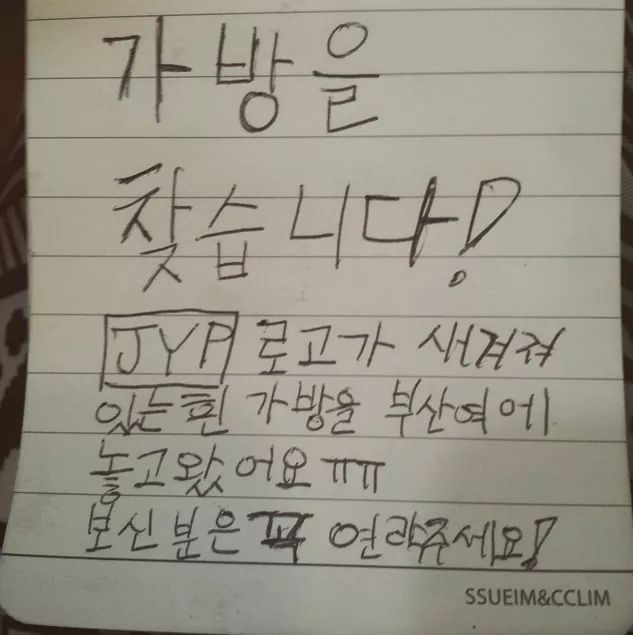 가방을
찾습니다!
JYP 로고가 새겨져
있는 흰 가방을 부산여에
놓고왔어요 ㅠㅠ
보신분은 꼭 연락주세요!
SSUEIM&CCLIM